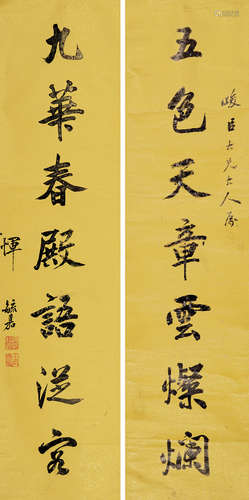 峻臣大兄大人属
五色天章雲燦爛
九華春殿語從容
惲毓嘉